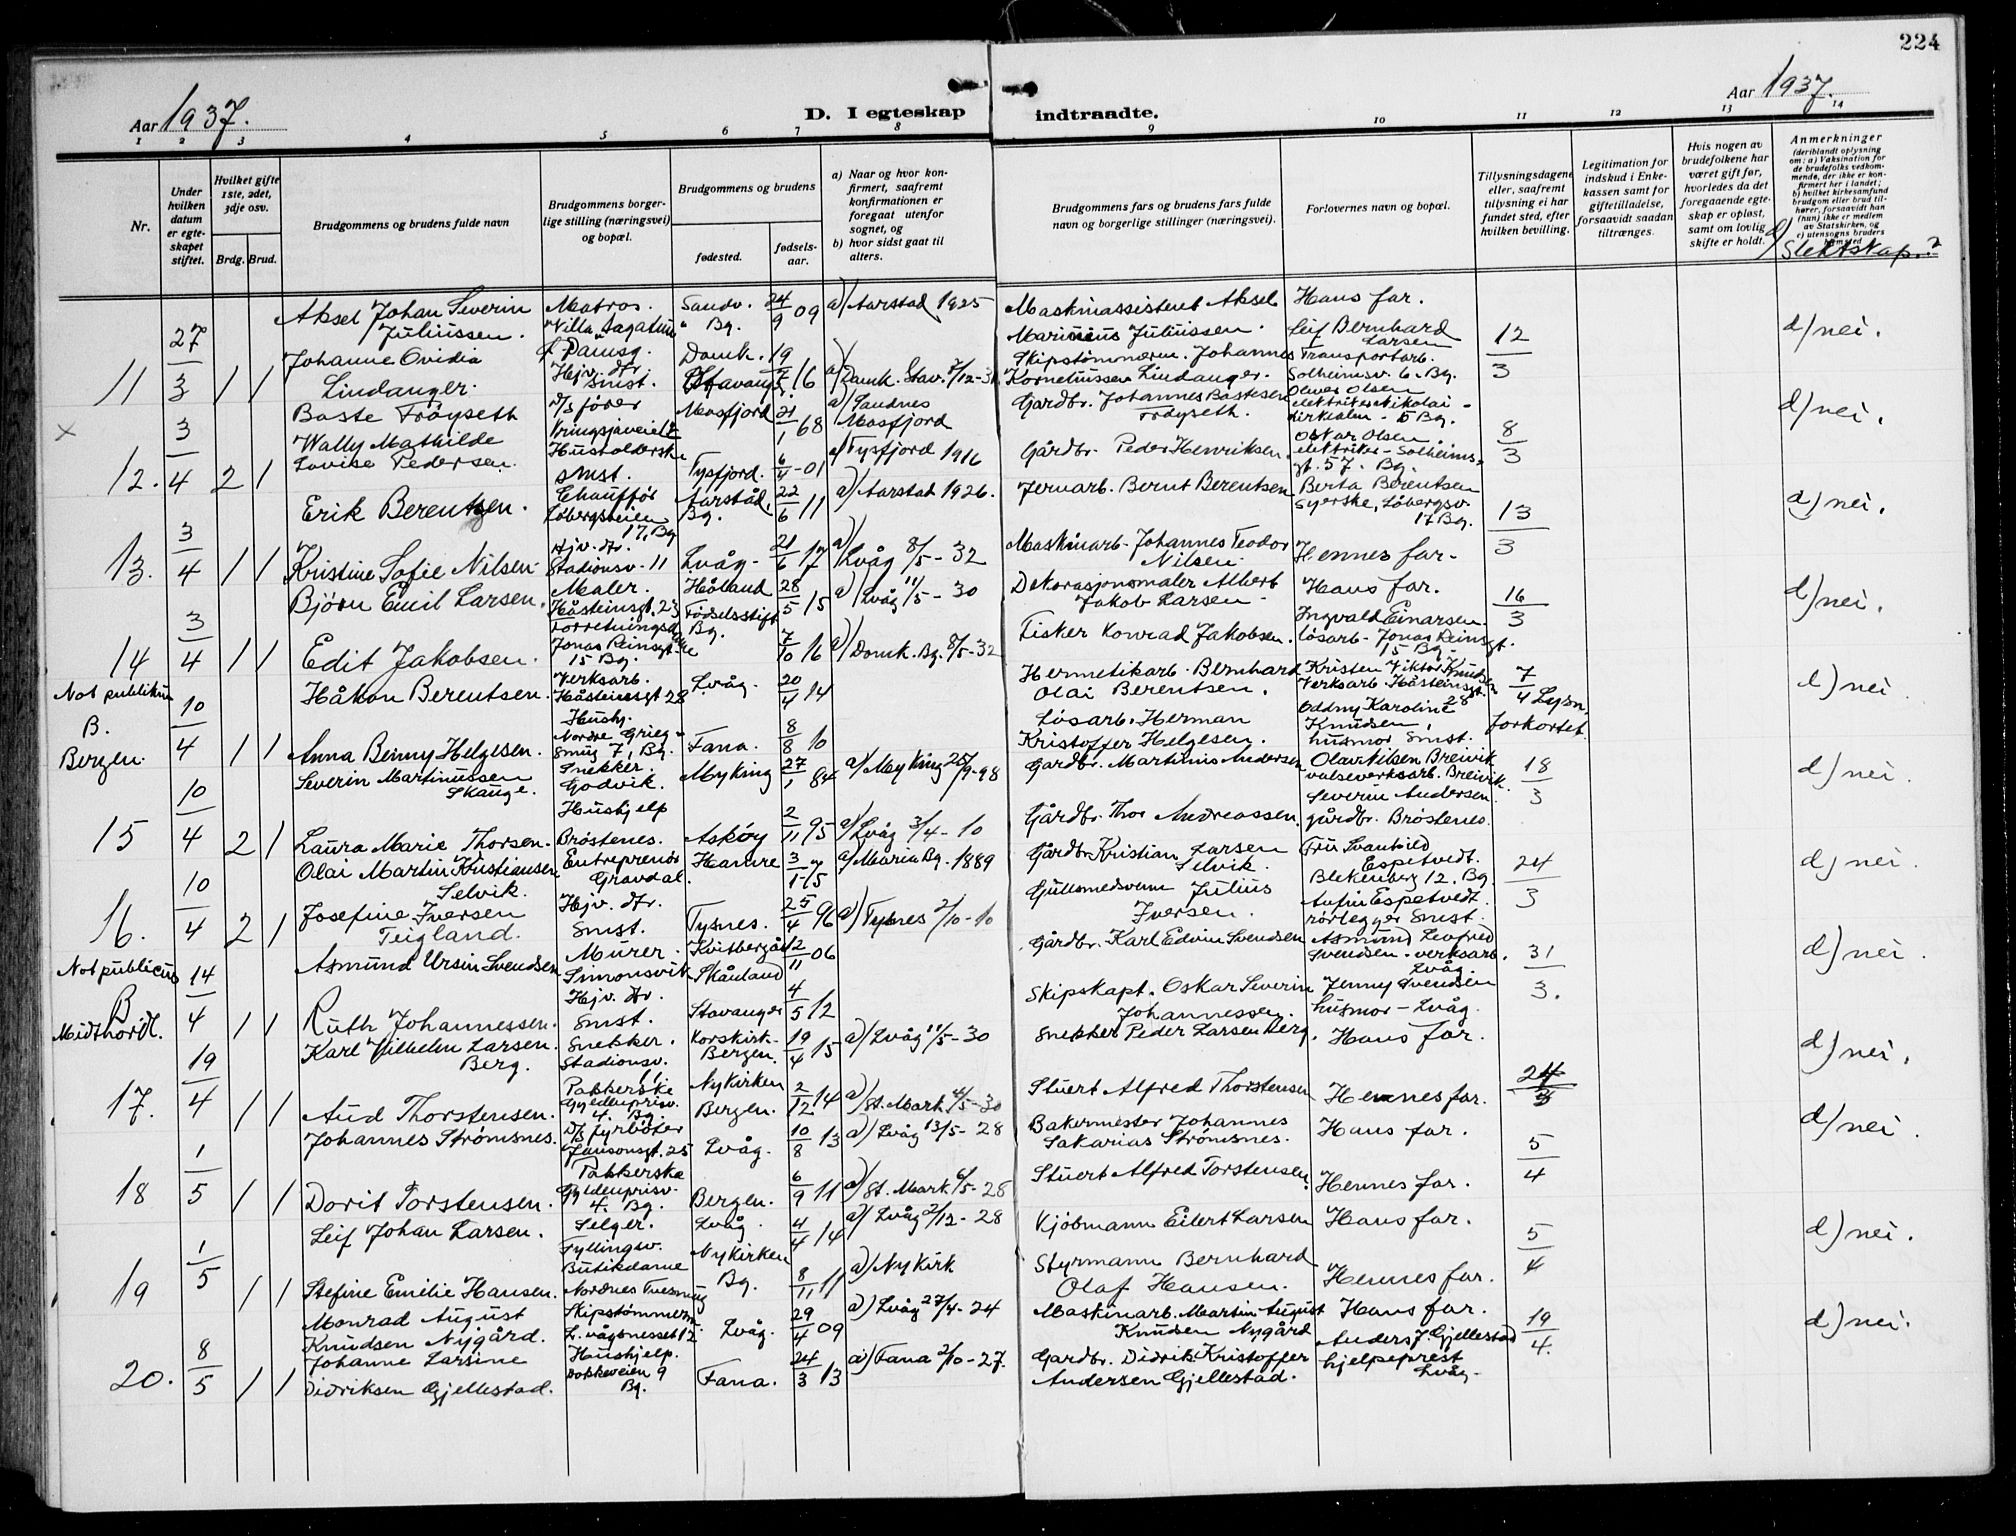 224
Aar 1937.
D. I egteskap indtraadte.
Aar 1937.
1 2 3 4 5 6 7 8 9 10 11 12 13 14
Nr.
Under hvilken datum er egteskapet stiftet.
Hvilket gifte 1ste, 2det, 3dje osv.
Brdg. Brud.
Brudgommens og brudens fulde navn
Brudgommens borgerlige stilling (næringsvei) og bopæl.
Brudgommens og brudens
fødested.
fødselsaar.
a) Naar og hvor konfirmert, saafremt konfirmationen er foregaat utenfor sognet, og
b) hvor sidst gaat til alters.
Brudgommens fars og brudens fars fulde navn og borgerlige stillinger (næringsvei).
Forlovernes navn og bopæl.
Tillysningsdagene eller, saafremt tillysning ei har fundet sted, efter hvilken bevilling.
Legitimation for indskud i Enkekassen samt for giftetilladelse, forsaavidt saadan tiltrænges.
Hvis nogen av brudefolkene har været gift før, hvorledes da det foregaaende egteskap er opløst, samt om lovlig skifte er holdt.
Anmerkninger
(deriblandt oplysning om: a) Vaksination for de brudefolks vedkommende, der ikke er konfirmert her i landet; b) hvilket kirkesamfund brudgom eller brud tilhører, forsaavidt han (hun) ikke er medlem av Statskirken, og c) utensogns bruders hjemsted
d) Slektskap.?
11 27/3 1 1
Aksel Johan Severin Juliussen.
Matros.
Sandv. Bg.
24/9 09
a) Aarstad 1925
Maskinassistent Aksel Marinius Juliussen.
Hans far.
12/3
d) nei.
Johanne Ovidia Lindanger.
Hjv. dtr. smst.
Domk. Stavang.
19/5 16
a) Domk. Stav.
Skipstømmerm. Johannes Korneliussen Lindanger.
Leif Bernhard Larsen
Transportarb.
Solheimsv. 6. Bg.
x 12. 3/4 2 1
Baste Frøyseth
D/S fører
Masfjord
21/1 68
a) Sandnes Masfjord
Gardbr. Johannes Bastesen Frøyseth.
Oliver Olsen
elektriker Nikolai-
8/3
d) nei.
Wally Mathilde Lovise Pedersen.
Husholderske smst.
Tysfjord.
6/4-01
a) Tysfjord 1916
Gårdbr. Peder Henriksen.
Oskar Olsen
elektriker - Solheimsgt. 57. Bg.
13. 3/4 1 1
Erik Berentsen.
Chauffør
Løbergsveien 17, Bg
Aarstad, Bg.
22/6 11
a) Aarstad 1926.
Jernarb. Bernt Berentsen
Berta Berentsen
syerske, Løbergsv. 17 Bg.
13/3
d) nei.
Kristine Sofie Nilsen.
Hjv. dtr.
Stadionsv. 11
Lvåg.
21/6 17
a) Lvåg 8/5-32
Maskinarb. Johannes Teodor Nilsen
Hennes far.
14 3/4 1 1
Bjørn Emil Larsen.
Maler.
Håsteinsgt. 23
Haukeland Fødselsstift Bg.
28/5 15
a) Lvåg 11/5-30
Dekorasjonsmaler Albert Jakob Larsen
Hans far.
16/3
d) nei.
Edit Jakobsen.
Jonas Reinsgt. 15 Bg.
7/10 16
a) Domk. Bg. 8/5-32
Fisker Konrad Jakobsen.
Ingvald Einarsen
løsarb. Jonas Reinsgt. 15 Bg.
Not publikus B. Bergen.
10/4 1 1
Håkon Berentsen.
Verksarb.
Håsteinsgt 28
Lvåg.
20/4 14
Hermetikarb. Bernhard Olai Berentsen.
Kristen Viktor Knudsen
Verksarb. Håsteinsgt. 28
7/4 Lysn. forkortet.
d) nei.
Anna Benny Helgesen.
Hushj.
Nordre Griegsmug 7, Bg.
Fana.
8/8 10
Løsarb. Herman Kristoffer Helgesen.
Oddny Karoline Knudsen, husmor smst.
15 10/4 2 1
Severin Martinussen Skauge.
Snekker.
Godvik.
Myking
27/1 84
a) Myking 25/9-98
Gardbr. Martinus Andersen
Olav Nilsen Breivik
valseverksarb. Breivik.
18/3
d) nei.
Laura Marie Thorsen.
Hushjelp
Brøstenes.
Askøy
2/11 95
a) Lvåg 3/4-10
Gårdbr. Thor Andreassen.
Severin Andersen
gårdbr. Brøstenes.
16. 10/4 2 1
Olai Martin Kristiansen Selvik.
Entreprenør
Gravdal.
Hamre
3/1-75
a) Maria Bg. 1889
Gårdbr. Kristian Larsen Selvik.
Fru Svanhild Espetvedt.
Blekenberg 12. Bg.
24/3
d) nei.
Josefine Iversen Teigland.
Hjv. dtr. smst.
Tysnes.
25/4 96
a) Tysnes 2/10-10
Gullsmedsvenn Julius Iversen.
Anfin Espetvedt.
rørlegger smst.
Not publicus B. Midthordl.
14/4 1 1
Asmund Ursin Svendsen
Murer.
Simonsvik
Skånland
12/11 06
Gårdbr. Karl Edvin Svendsen
Asmund Leofred Svendsen - verksarb. Lvåg.
31/3.
d) nei.
Ruth Johannessen.
Hjv. dtr. smst.
Stavanger
4/5 12
Skipskapt. Oskar Severin Johannessen.
Jenny Svendsen
husmor - Lvåg.
17. 19/4 1 1
Karl Vilhelm Larsen Berg.
Snekker.
Stadionsv. 11.
Korskirk. Bergen.
19/4 15
a) Lvåg 11/5-30
Snekker Peder Larsen Berg.
Hans far.
24/3
d) nei.
Aud Thorstensen.
Pakkerske
Gyldenprisv. 4. Bg.
Nykirken Bergen.
2/12 14
a) St. Mark. 4/5-30
Stuert Alfred Thorstensen
Hennes far.
18 1/5 1 1
Johannes Strømsnes.
D/S fyrbøter
Jansonsgt. 25
Lvåg.
10/8 13
a) Lvåg 13/5-28
Bakermester Johannes Sakarias Strømsnes.
Hans far.
5/4
d) nei.
Dorit Torstensen.
Pakkerske
Gyldenprisv. 4. Bg.
Bergen.
6/9 11
a) St. Mark. 6/5-28
Stuert Alfred Torstensen.
Hennes far.
19 1/5 1 1
Leif Johan Larsen.
Selger.
Fyllingsv.
Lvåg.
4/4 14
a) Lvåg 2/12-28
Kjøbmann Eilert Larsen
Hans far.
5/4
d) nei.
Stefine Emilie Hansen.
Butikdame
Nykirken Bg.
8/11 11
a) Nykirk
Styrmann Bernhard Olaf Hansen.
Hennes far.
20. 8/5 1 1
Monrad August Knudsen Nygård.
Skipstømmerm.
L.vågsnesset 12
Lvåg.
29/4 09
a) Lvåg 27/4-24
Maskinarb. Martin August Knudsen Nygård
Hans far.
19/4.
d) nei.
Johanne Larsine Didriksen Gjellestad.
Hushjelp.
Dokkeveien 9 Bg.
Fana.
24/3 13
a) Fana 2/10-27.
Gardbr. Didrik Kristoffer Andersen Gjellestad.
Anders J. Gjellestad
hjelpeprest Lvåg.